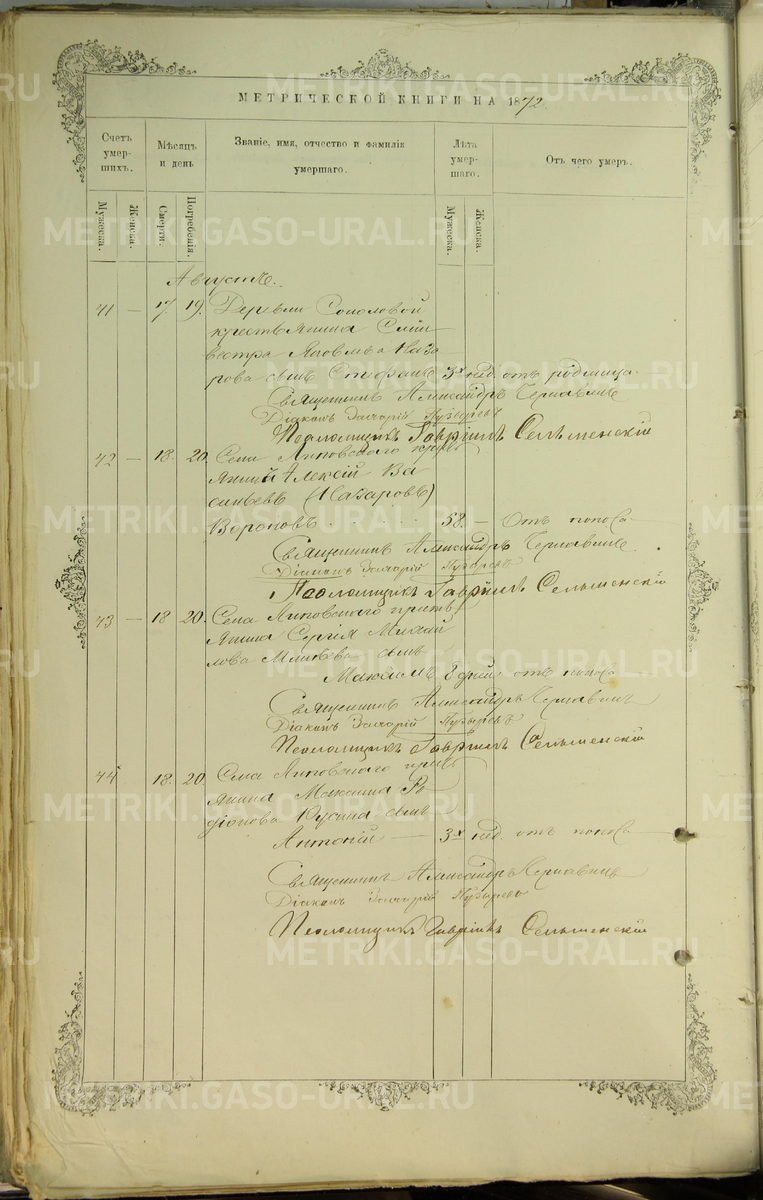 МЕТРИЧЕСКОЙ КНИГИ НА 1872.
Счетъ умер- шихъ.
Мѣсяцъ и день
Званіе, имя, отчество и фамилія умершаго.
Лѣта умер- шаго.
Отъ чего умеръ.
Мужеска.
Женска.
Смерти.
Погребенія.
Мужеска.
Женска.
Августъ.
41 — 17 19. Деревни Соколовой
крестьянина Сили
вестра Яковлева Наза
рова сынъ Стефанъ 3х нед. отъ родимца.
Священникъ Александръ
Діаконъ Захарій Пузыревъ
Псаломщикъ Гавріилъ Селменскій
42 — 18. 20. Села Липовского крест
янинъ Алексій Ва
сильевъ (Назаровъ)
Вороновъ . . . . . 58. — Отъ поноса
Священникъ Александръ
Діаконъ Захарій Пузыревъ
Псаломщикъ Гавріилъ Селменскій
43 — 18 20. Села Липовского кресть
янина Сергія Михай
лова сынъ
Максимъ 8 дней. отъ поноса
Священникъ Александръ
Діаконъ Захарій Пузыревъ
Псаломщикъ Гавріилъ Селменскій
44 18. 20 Села Липовского крест
янина Максима Ро
діонова сынъ
Антоній — 3х нед. отъ поноса
Священникъ Александръ
Діаконъ Захарій Пузыревъ
Псаломщикъ Гавріилъ Селменскій
METRIKI.GASO-URAL.RU